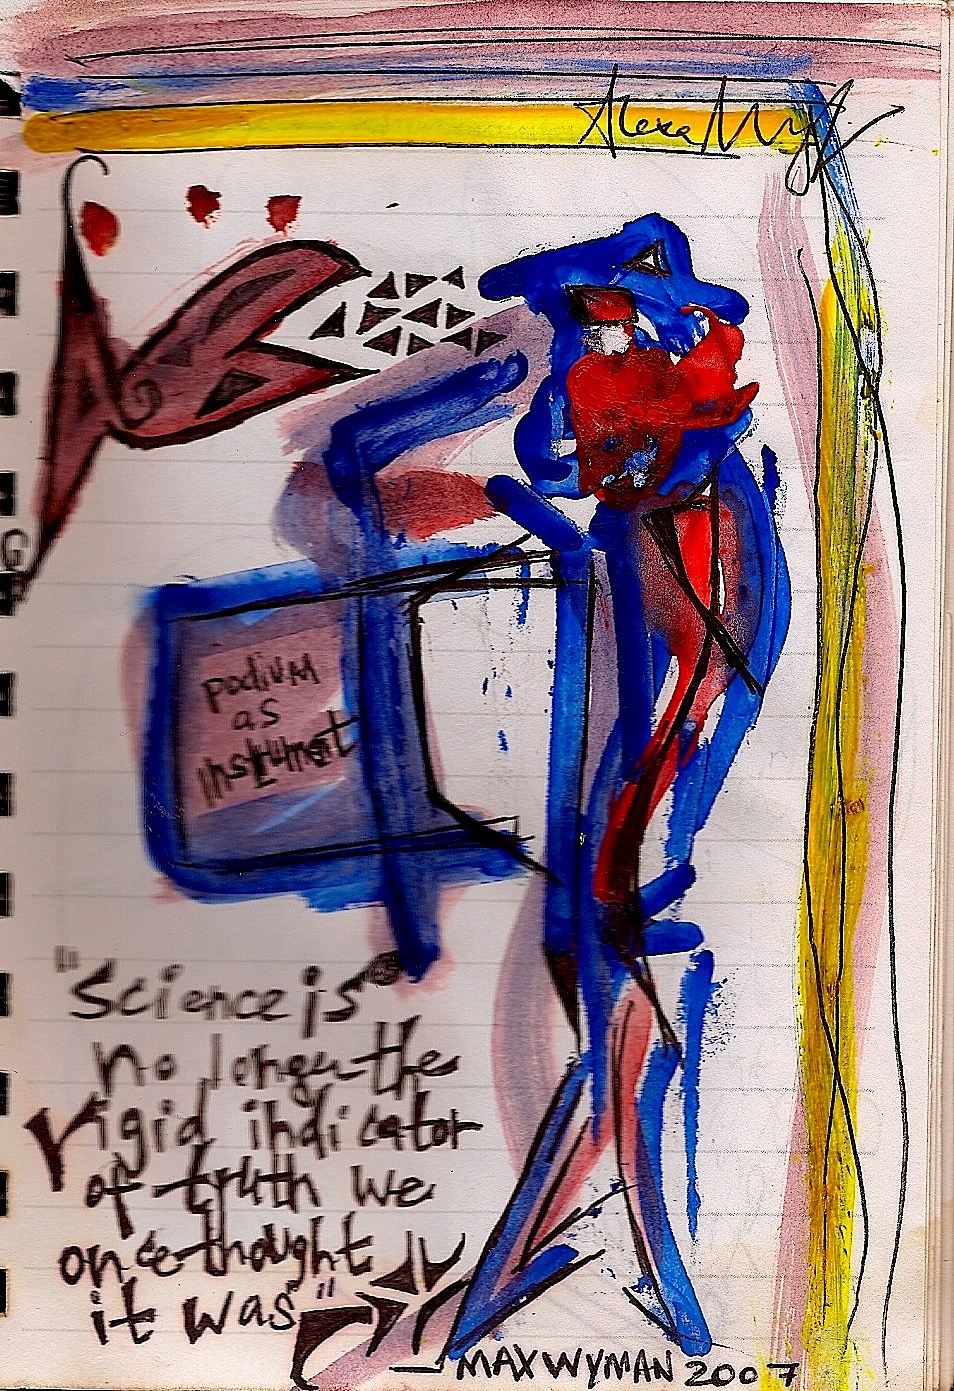 podium
as
instrument
"Science is
no longer the
rigid indicator
of truth we
once thought
it was"
MAX WYMAN 2007